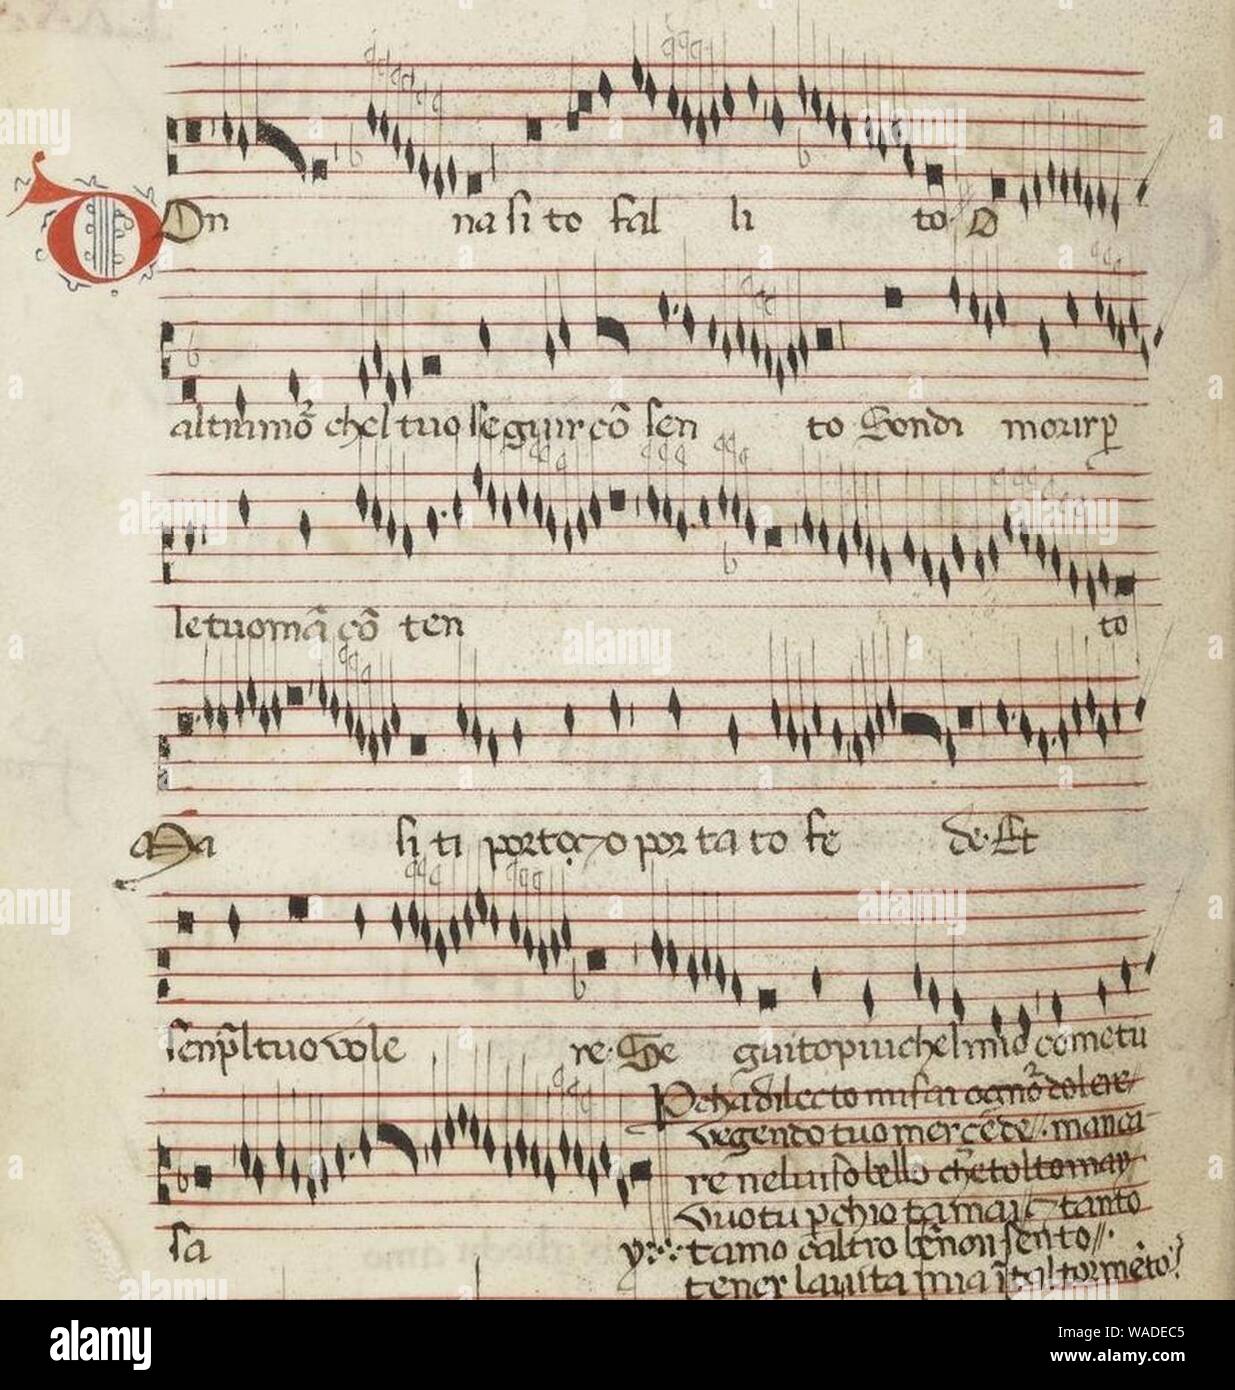 Don na si to fal li to. O
altrimō chel tuo seguir cō sen to Son di morir p
le tuo mā cō ten to
Ma si ti porto o por ta to fe de. Et
senpl tuo vole re. Se guito piu chel mio come tu
sa y
Pcha dilecto mi fai ognō dolere
vegendo tuo mercede. manca
re nel viso bello che tolto may
vuo tu pchio ta mai tanto
tamo caltro bē non sento
tener la vita mia ī tal tormēto
alamy
Image ID: WADEC5
www.alamy.com